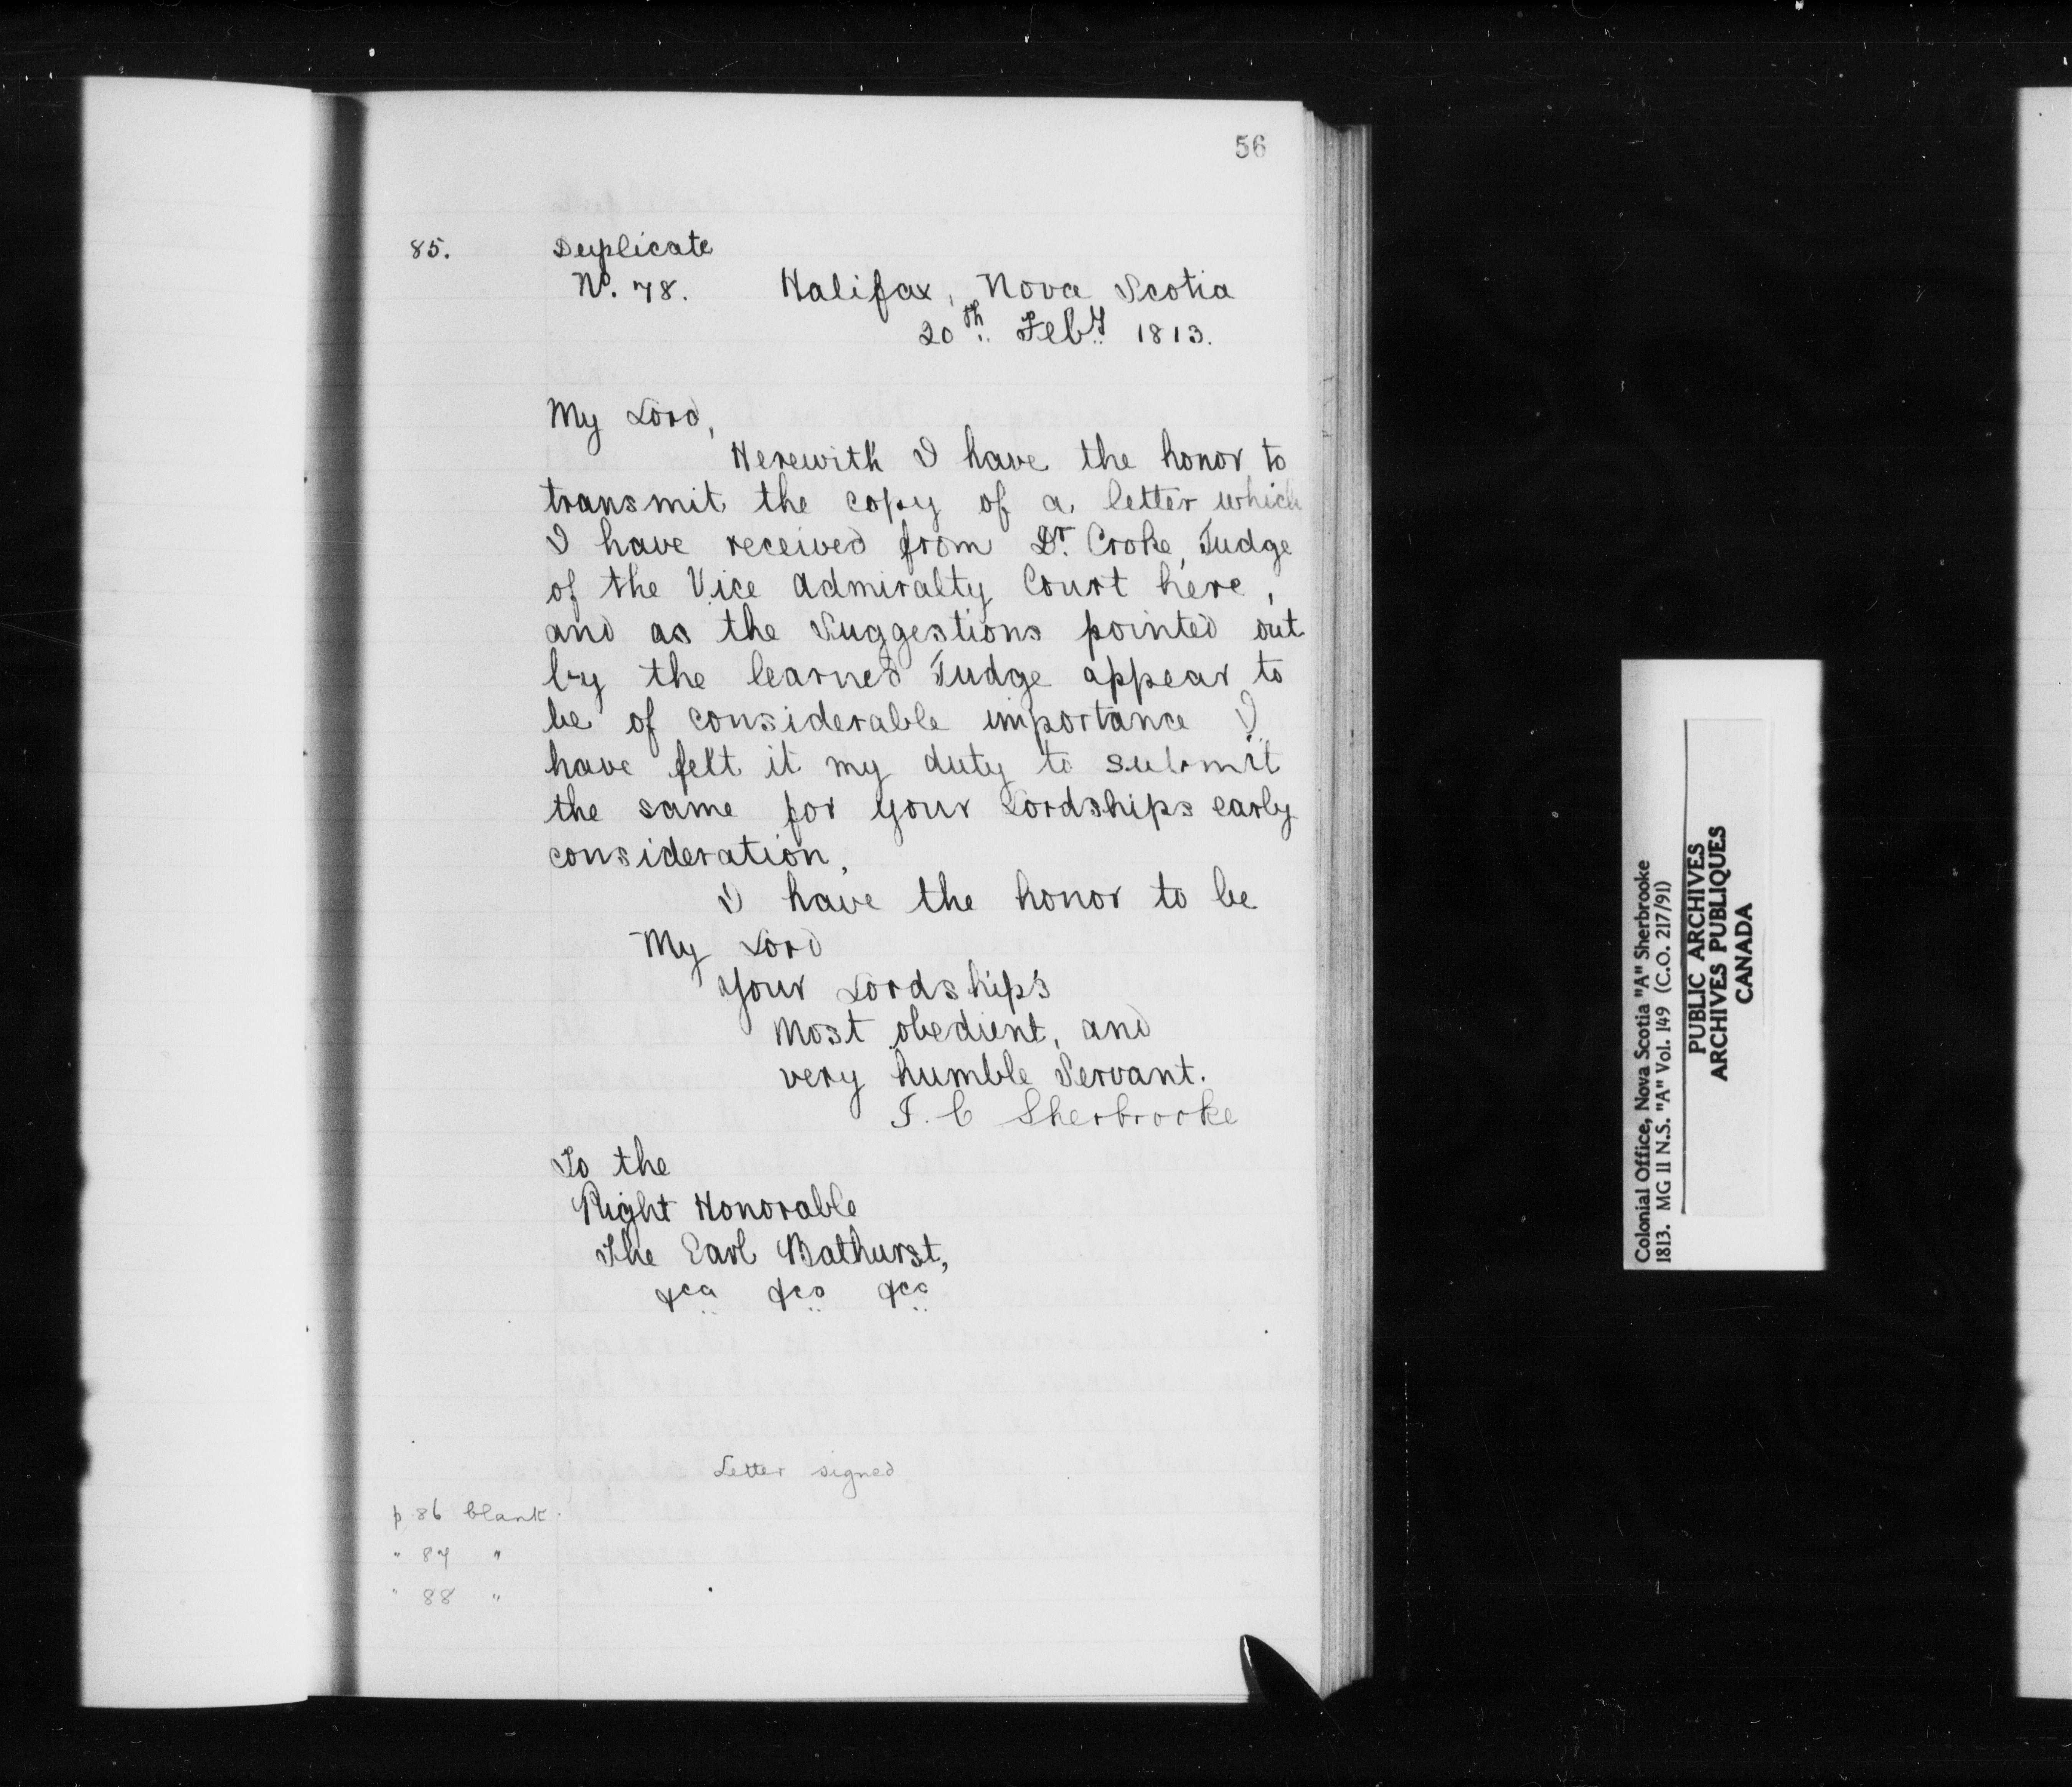 56
85. Duplicate
No. 78. Halifax, Nova Scotia
20th. Feby 1813.
My Lord,
Herewith I have the honor to
transmit the copy of a letter which
I have received from Dr. Croke, Judge
of the Vice Admiralty Court here,
and as the Suggestions pointed out
by the learned Judge appear to
be of considerable importance I
have felt it my duty to submit
the same for your Lordships early
consideration,
I have the honor to be
My Lord
Your Lordship's
Most obedient, and
very humble Servant.
J. C Sherbrooke
To the
Right Honorable
The Earl Bathurst,
&ca &ca &ca
Letter signed
p 86 blank.
" 87 "
" 88 "
Colonial Office, Nova Scotia "A" Sherbrooke
1813. MG 11 N.S. "A" Vol. 149 (C.O. 217/91)
PUBLIC ARCHIVES
ARCHIVES PUBLIQUES
CANADA